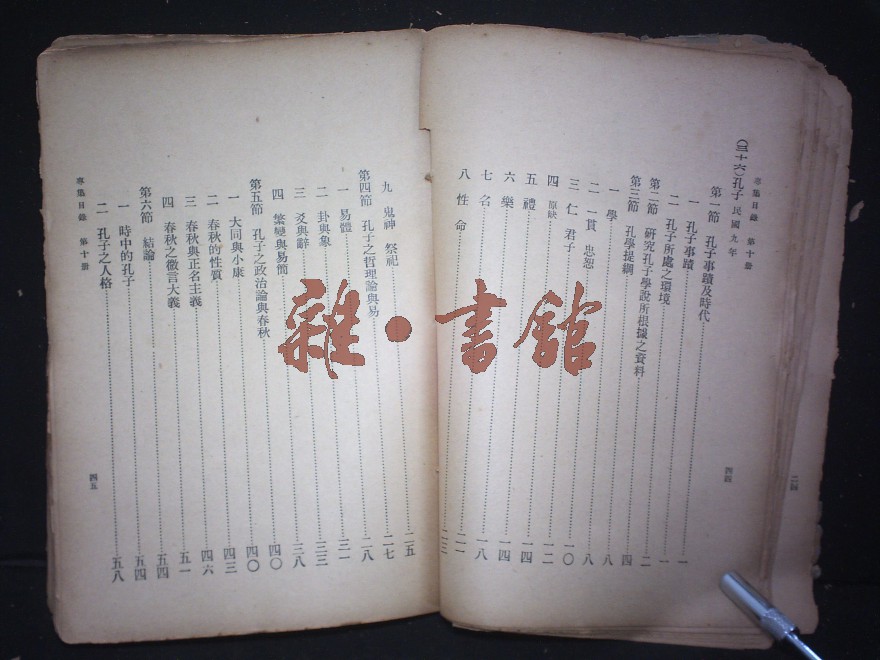 專集目錄 第十册 二四
(三十六)孔子 民國九年 四四
第一節 孔子事蹟及時代 一
一 孔子事蹟 一
二 孔子所處之環境 二
第二節 研究孔子學說所根據之資料 四
第三節 孔學提綱 八
一 學 八
二 一貫 忠恕 一〇
三 仁 君子 一二
四 原缺 一四
五 禮 一四
六 樂 一八
七 名 二一
八 性命 二三
九 鬼神 祭祀 二五
第四節 孔子之哲理論與易 二七
一 易體 二八
二 卦與象 三一
三 爻與辭 三三
四 繁變與易簡 三八
第五節 孔子之政治論與春秋 四〇
一 大同與小康 四〇
二 春秋的性質 四三
三 春秋與正名主義 四六
四 春秋之微言大義 五一
第六節 結論 五四
一 時中的孔子 五四
二 孔子之人格 五八
四五
雜·書館